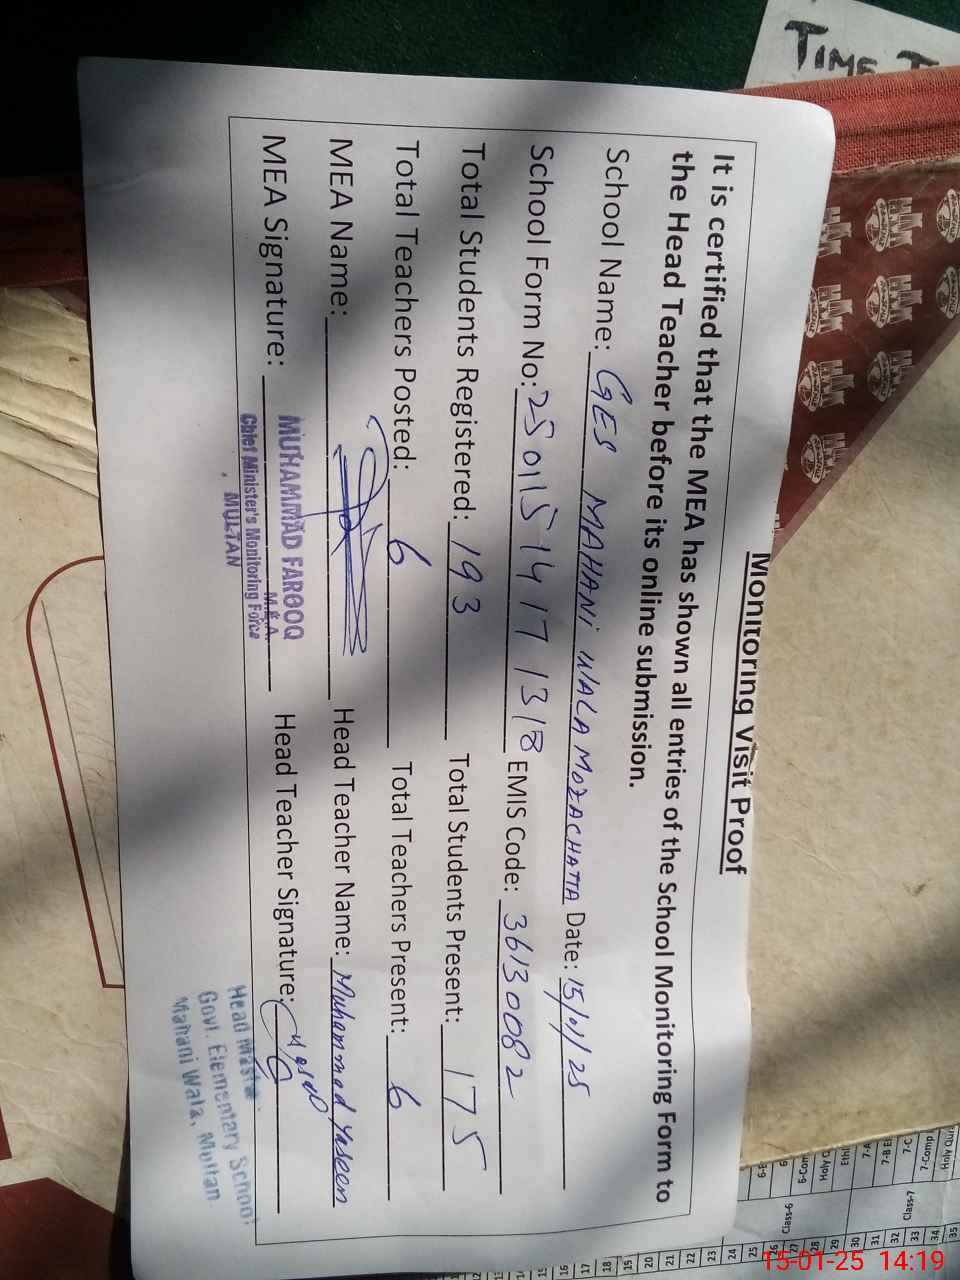 Time
Monitoring Visit Proof
It is certified that the MEA has shown all entries of the School Monitoring Form to
the Head Teacher before its online submission.
School Name: GES MAHANI WALA MOZACHATTA Date: 15/01/25
School Form No: 25011514171318 EMIS Code: 36130082
Total Students Registered: 193 Total Students Present: 175
Total Teachers Posted: 6 Total Teachers Present: 6
MEA Name: Head Teacher Name: Muhammad Yaseen
MEA Signature: Head Teacher Signature:
MUHAMMAD FAROOQ
M.E.A.
Chief Minister's Monitoring Force
MULTAN
Head Master
Govt. Elementary School
Mahani Wala, Multan
Class-6
Class-7
7-A
7-C
7-Comp
15 16 17 18 19 20 21 22 23 24 25 26 27 28 29 30 31 32 33 34 35
15-01-25 14:19